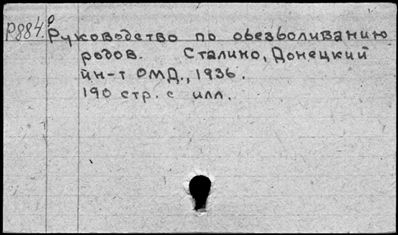 Р884. Руководство по обезболиванию
родов. Сталино, Донецкий
йн-т ОМД., 1936.
190 стр. с илл.